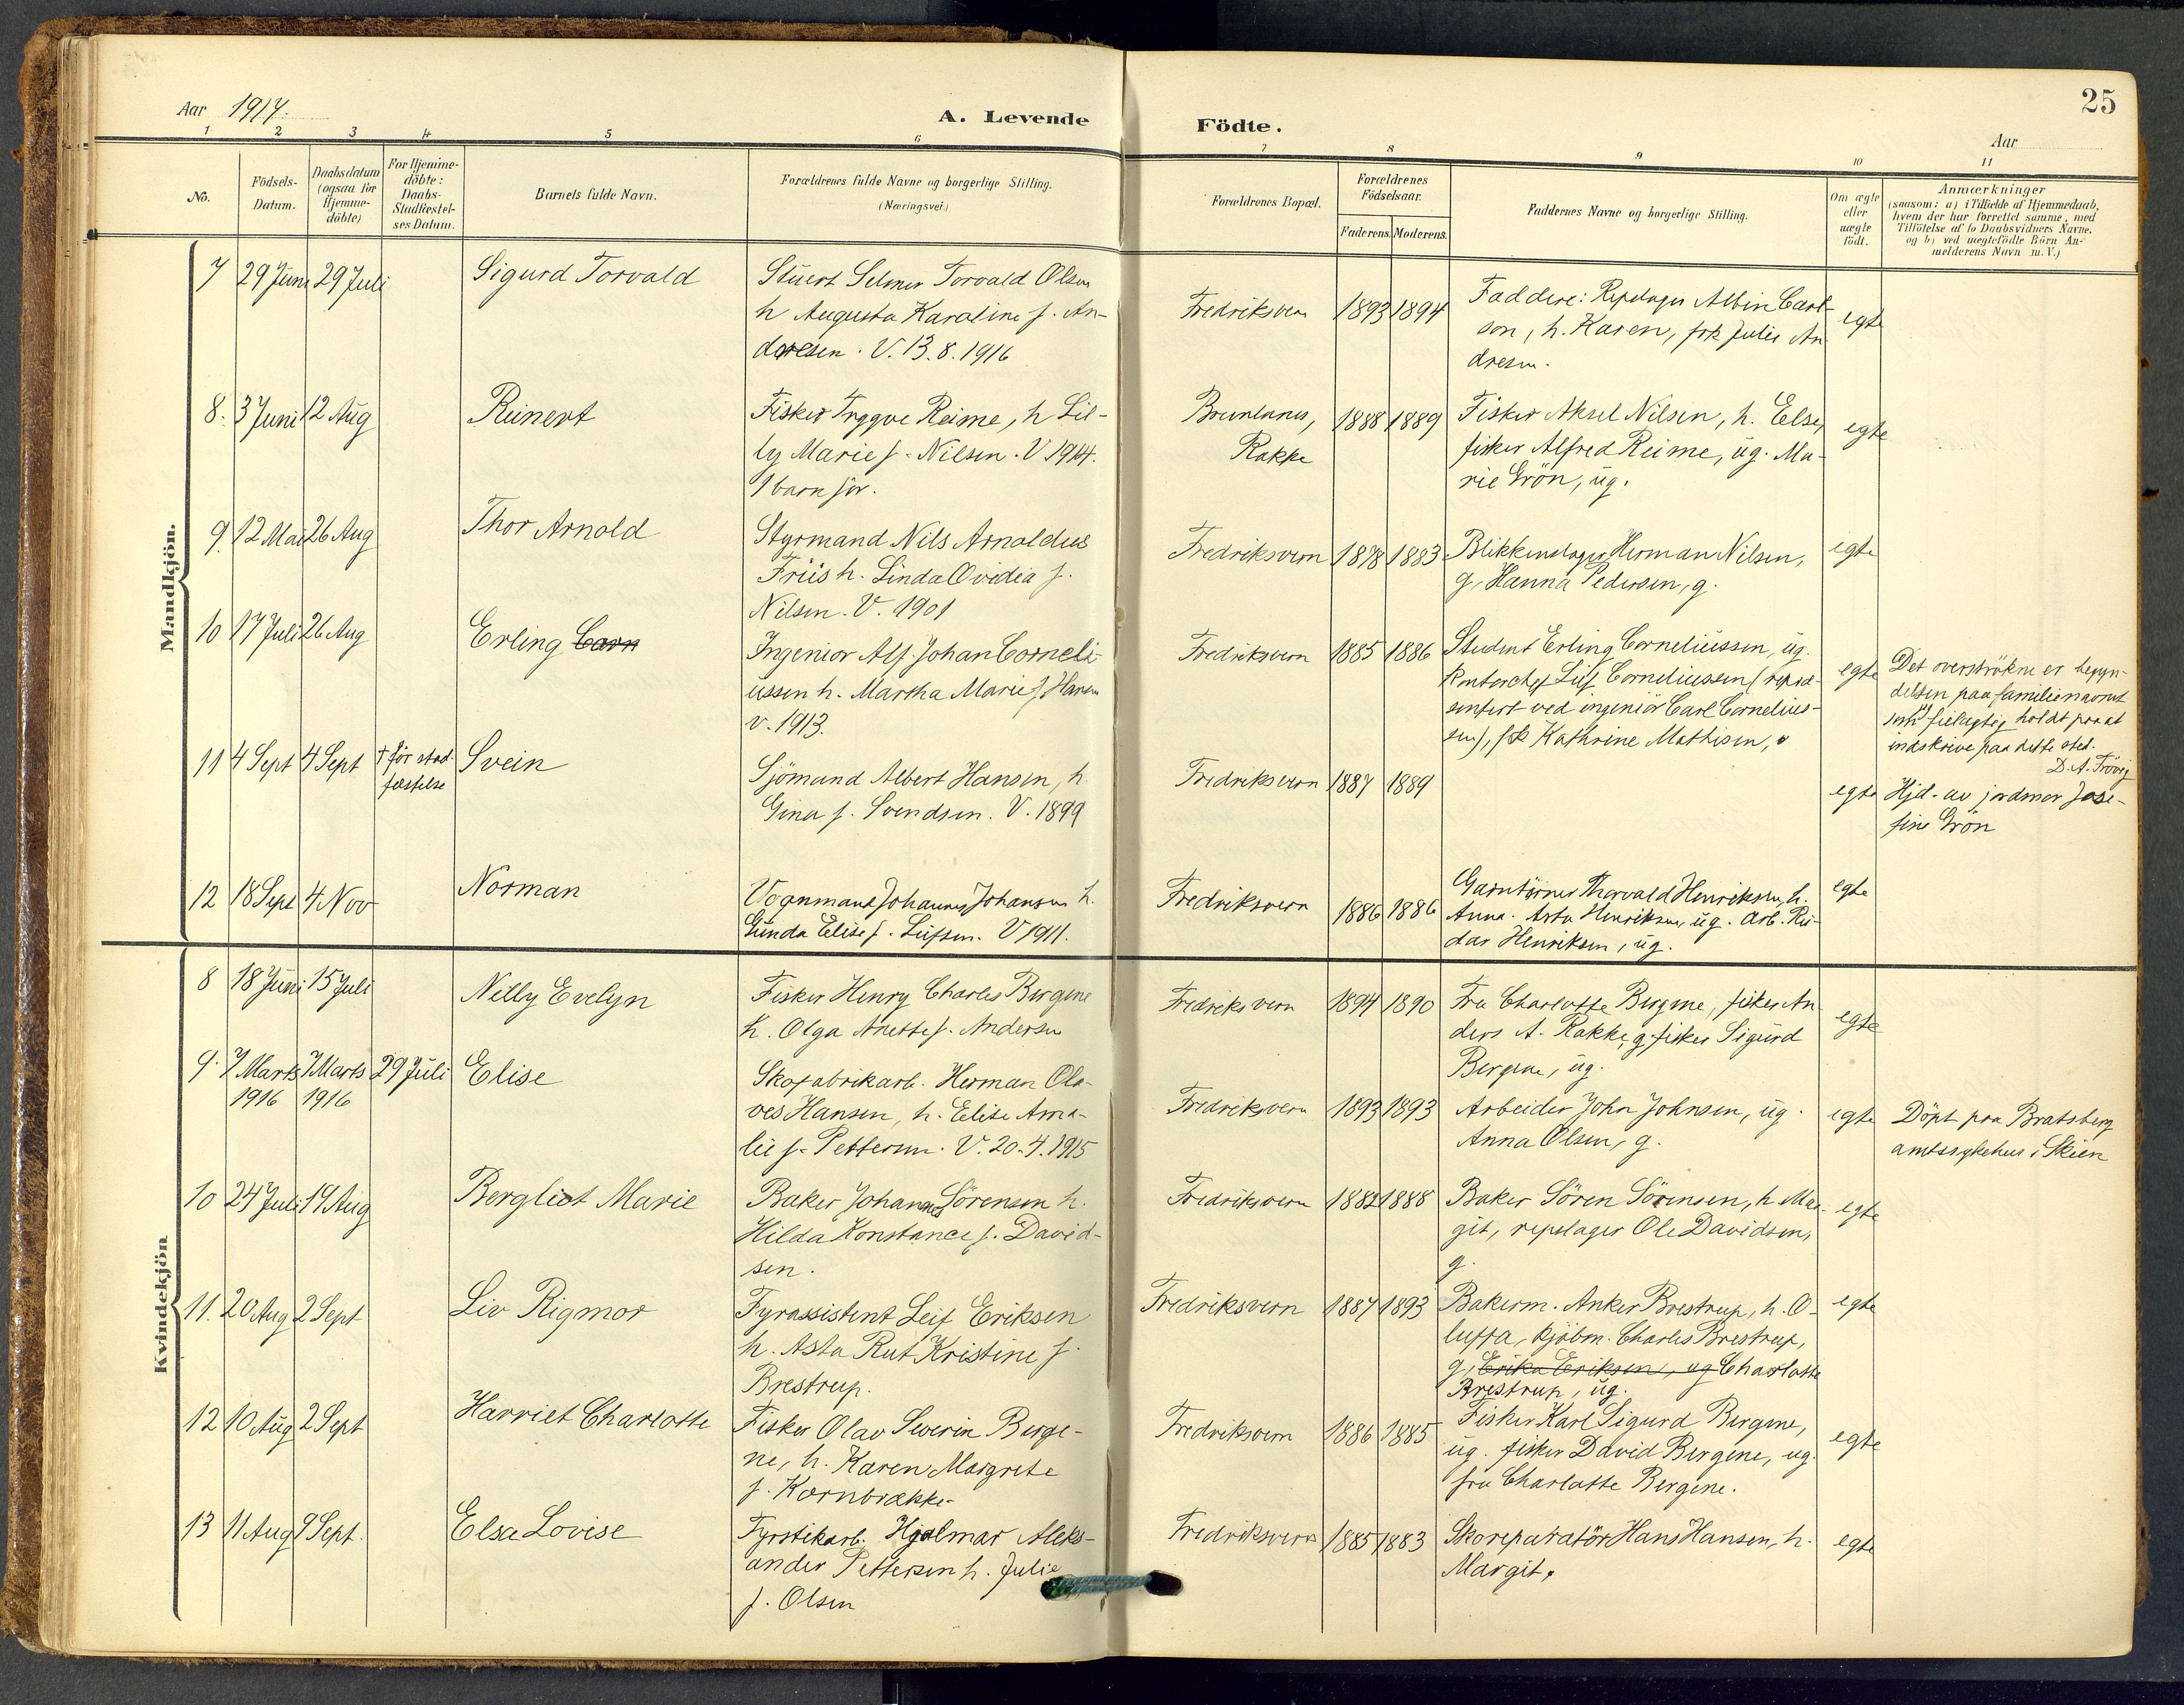 Aar 1917.
A. Levende Födte.
25
Aar
1 2 3 4 5 6 7 8 9 10 11
No.
Födsels-
Datum.
Daabsdatum
(ogsaa for
Hjemme-
döbte)
For Hjemme-
döbte:
Daabs-
Stadfæstel-
ses Datum.
Barnets fulde Navn.
Forældrenes fulde Navne og borgerlige Stilling.
(Næringsvei.)
Forældrenes Bopæl.
Forældrenes
Födselsaar.
Faderens. Moderens.
Faddernes Navne og borgerlige Stilling.
Om ægte
eller
uægte
födt.
Anmærkninger
(saasom: a) i Tilfælde af Hjemmedaab,
hvem der har forrettet samme, med
Tilföielse af to Daabsvidners Navne.
og b) ved uægtefödte Börn An-
melderens Navn m. V.)
Mandkjön.
7 29 Juni 29 Juli Sigurd Torvald
Stuert Selmer Torvald Olsen
h Augusta Karoline f. An-
dresen. V. 13.8.1916
Fredriksvern 1893 1894
Faddere: Repslager Albin Carl-
son, h. Karen, frk Julie An
dresen.
egte
8. 3 Juni 12 Aug Reinert
Fisker Tryggve Reime, h Lil-
ly Marie f. Nilsen. V 1914.
1 barn för.
Brunlanes,
Rakke
1888 1889
Fisker Aksel Nilsen, h. Else,
fisker Alfred Reime, ug. Ma-
rie Grön, ug.
egte
9. 12 Mai 26 Aug Thor Arnold
Styrmand Nils Arnoldus
Friis h. Linda Ovidia f.
Nilsen. V. 1901
Fredriksvern 1878 1883
Blikkenslager Herman Nilsen,
g, Hanna Pedersen, g.
egte
10 17 Juli 26 Aug Erling Corn
Ingeniör Alf Johan Corneli-
ussen h. Martha Marie f. Hansen
v. 1913.
Fredriksvern 1885 1886
Student Erling Corneliussen, ug.
Kontorchef Leif Corneliussen (repræ-
sentert ved ingeniör Carl Cornelius-
sen), frk Kathrine Mathisen,
egte
Det overströkne er begyn-
delsen paa familienavnet
som feilagtig holdt paa at
indskrive paa dette sted.
D. A. Frövig
11 4 Sept 4 Sept † för stad-
fæstelse
Svein
Sjömand Albert Hansen, h.
Gina f. Svendsen. V. 1899
Fredriksvern 1887 1889
egte
Hjd. av jordmor Jose-
fine Grön
12 18 Sept 4 Nov Norman
Vognmand Johannes Johansen h.
Gunda Elise f. Leifsen. V 1911.
Fredriksvern 1886 1886
Thorvald Henriksen, h.
Anna. Asta Henriksen, ug. Arb. Rei-
dar Henriksen, ug.
egte
Kvindekjön
8 18 Juni 15 Juli Nelly Evelyn
Fisker Henry Charles Bergene
h. Olga Anette f. Andersen
Fredriksvern 1894 1890
Fru Charlotte Bergene, fisker An
ders A. Rakke, g. fisker Sigurd
Bergene, ug.
egte
9. 7 Marts 7 Marts 29 Juli Elise
1916 1916
Skofabrikarb. Herman Ola-
ves Hansen, h. Elise Ama-
lie f. Pettersen. V. 20.4.1915
Fredriksvern 1893 1893
Arbeider John Johnsen, ug.
Anna Olsen, g.
egte
Döpt paa Bratsberg
amtssykehus i Skien
10 24 Juli 19 Aug Bergliot Marie
Baker Johannes Sörensen h.
Hilda Konstance f. David-
sen.
Fredriksvern 1882 1888
Baker Sören Sörensen, h Mar-
git, repslager Ole Davidsen,
g.
egte
11. 20 Aug 2 Sept Liv Rigmor
Fyrassistent Leif Eriksen
h. Asta Rut Kristine f.
Brestrup.
Fredriksvern 1887 1893
Bakerm. Anker Brestrup, h. O-
luffa, kjöbm. Charles Brestrup,
g, Erika Eriksen, ug Charlotte
Brestrup, ug.
egte
12 10 Aug 2 Sept Harriet Charlotte
Fisker Olav Severin Berge-
ne, h. Karen Margrete
f. Kornbrække.
Fredriksvern 1886 1885
Fisker Karl Sigurd Bergene,
ug. fisker David Bergene, ug.
fru Charlotte Bergene.
egte
13 11 Aug 9 Sept. Elsa Lovise
Fyrstikarb. Hjalmar Aleks-
ander Pettersen h. Julie
f. Olsen
Fredriksvern 1885 1883
Skoreparatör Hans Hansen, h.
Margit.
egte